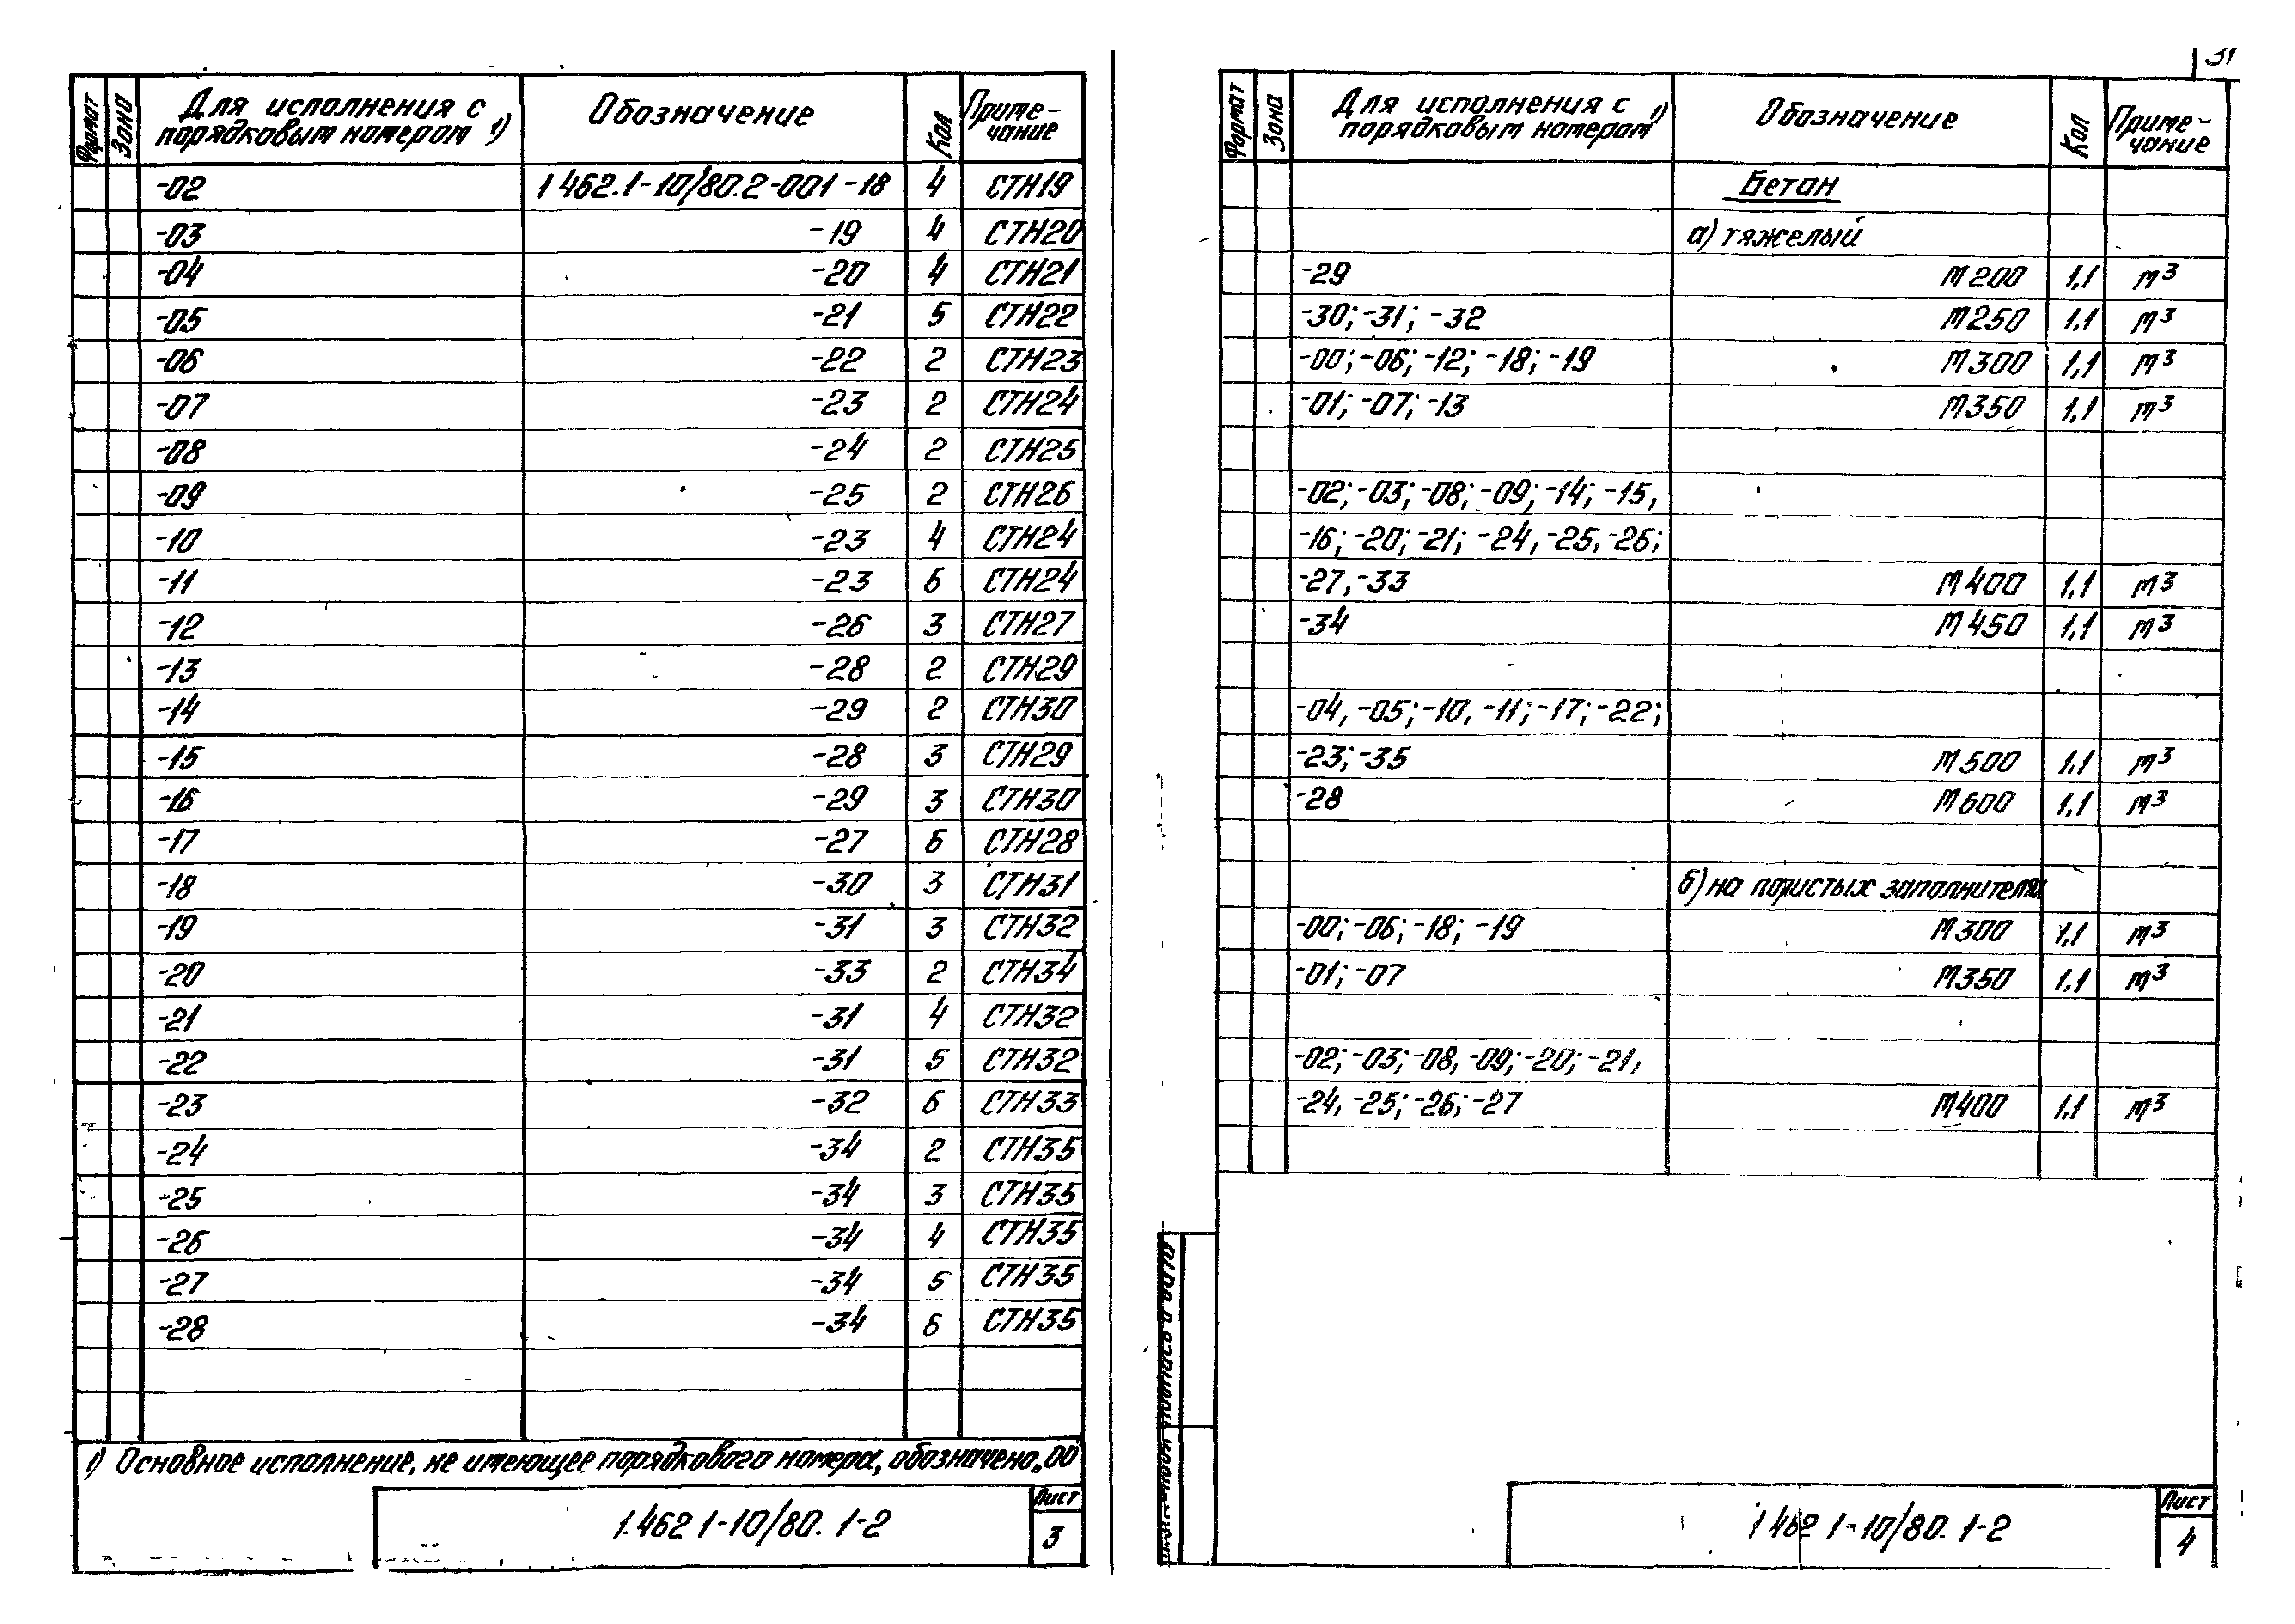 Формат Зона Для исполнения с порядковым номером 1) Обозначение Кол Приме-чание
-02 1 462.1-10/80.2-001 -18 4 СТН19
-03 -19 4 СТН20
-04 -20 4 СТН21
-05 -21 5 СТН22
-06 -22 2 СТН23
-07 -23 2 СТН24
-08 -24 2 СТН25
-09 -25 2 СТН26
-10 -23 4 СТН24
-11 -23 6 СТН24
-12 -26 3 СТН27
-13 -28 2 СТН29
-14 -29 2 СТН30
-15 -28 3 СТН29
-16 -29 3 СТН30
-17 -27 6 СТН28
-18 -30 3 СТН31
-19 -31 3 СТН32
-20 -33 2 СТН34
-21 -31 4 СТН32
-22 -31 5 СТН32
-23 -32 6 СТН33
-24 -34 2 СТН35
-25 -34 3 СТН35
-26 -34 4 СТН35
-27 -34 5 СТН35
-28 -34 6 СТН35
1) Основное исполнение, не имеющее порядкового номера, обозначено „00
1.462 1-10/80. 1-2
Лист
3
31
Формат Зона Для исполнения с порядковым номером 1) Обозначение Кол Приме-чание
Бетон
а) тяжелый
-29 М200 1,1 м³
-30; -31; -32 М250 1,1 м³
-00; -06; -12; -18; -19 М300 1,1 м³
-01; -07; -13 М350 1,1 м³
-02; -03; -08; -09; -14; -15,
-16; -20; -21; -24, -25, -26;
-27, -33 М400 1,1 м³
-34 М450 1,1 м³
-04, -05; -10, -11; -17; -22;
-23; -35 М500 1,1 м³
-28 М600 1,1 м³
б) на пористых заполнителях
-00; -06; -18; -19 М300 1,1 м³
-01; -07 М350 1,1 м³
-02; -03; -08, -09; -20; -21,
-24, -25; -26; -27 М400 1,1 м³
подпись и дата
1 462 1-10/80. 1-2
Лист
4